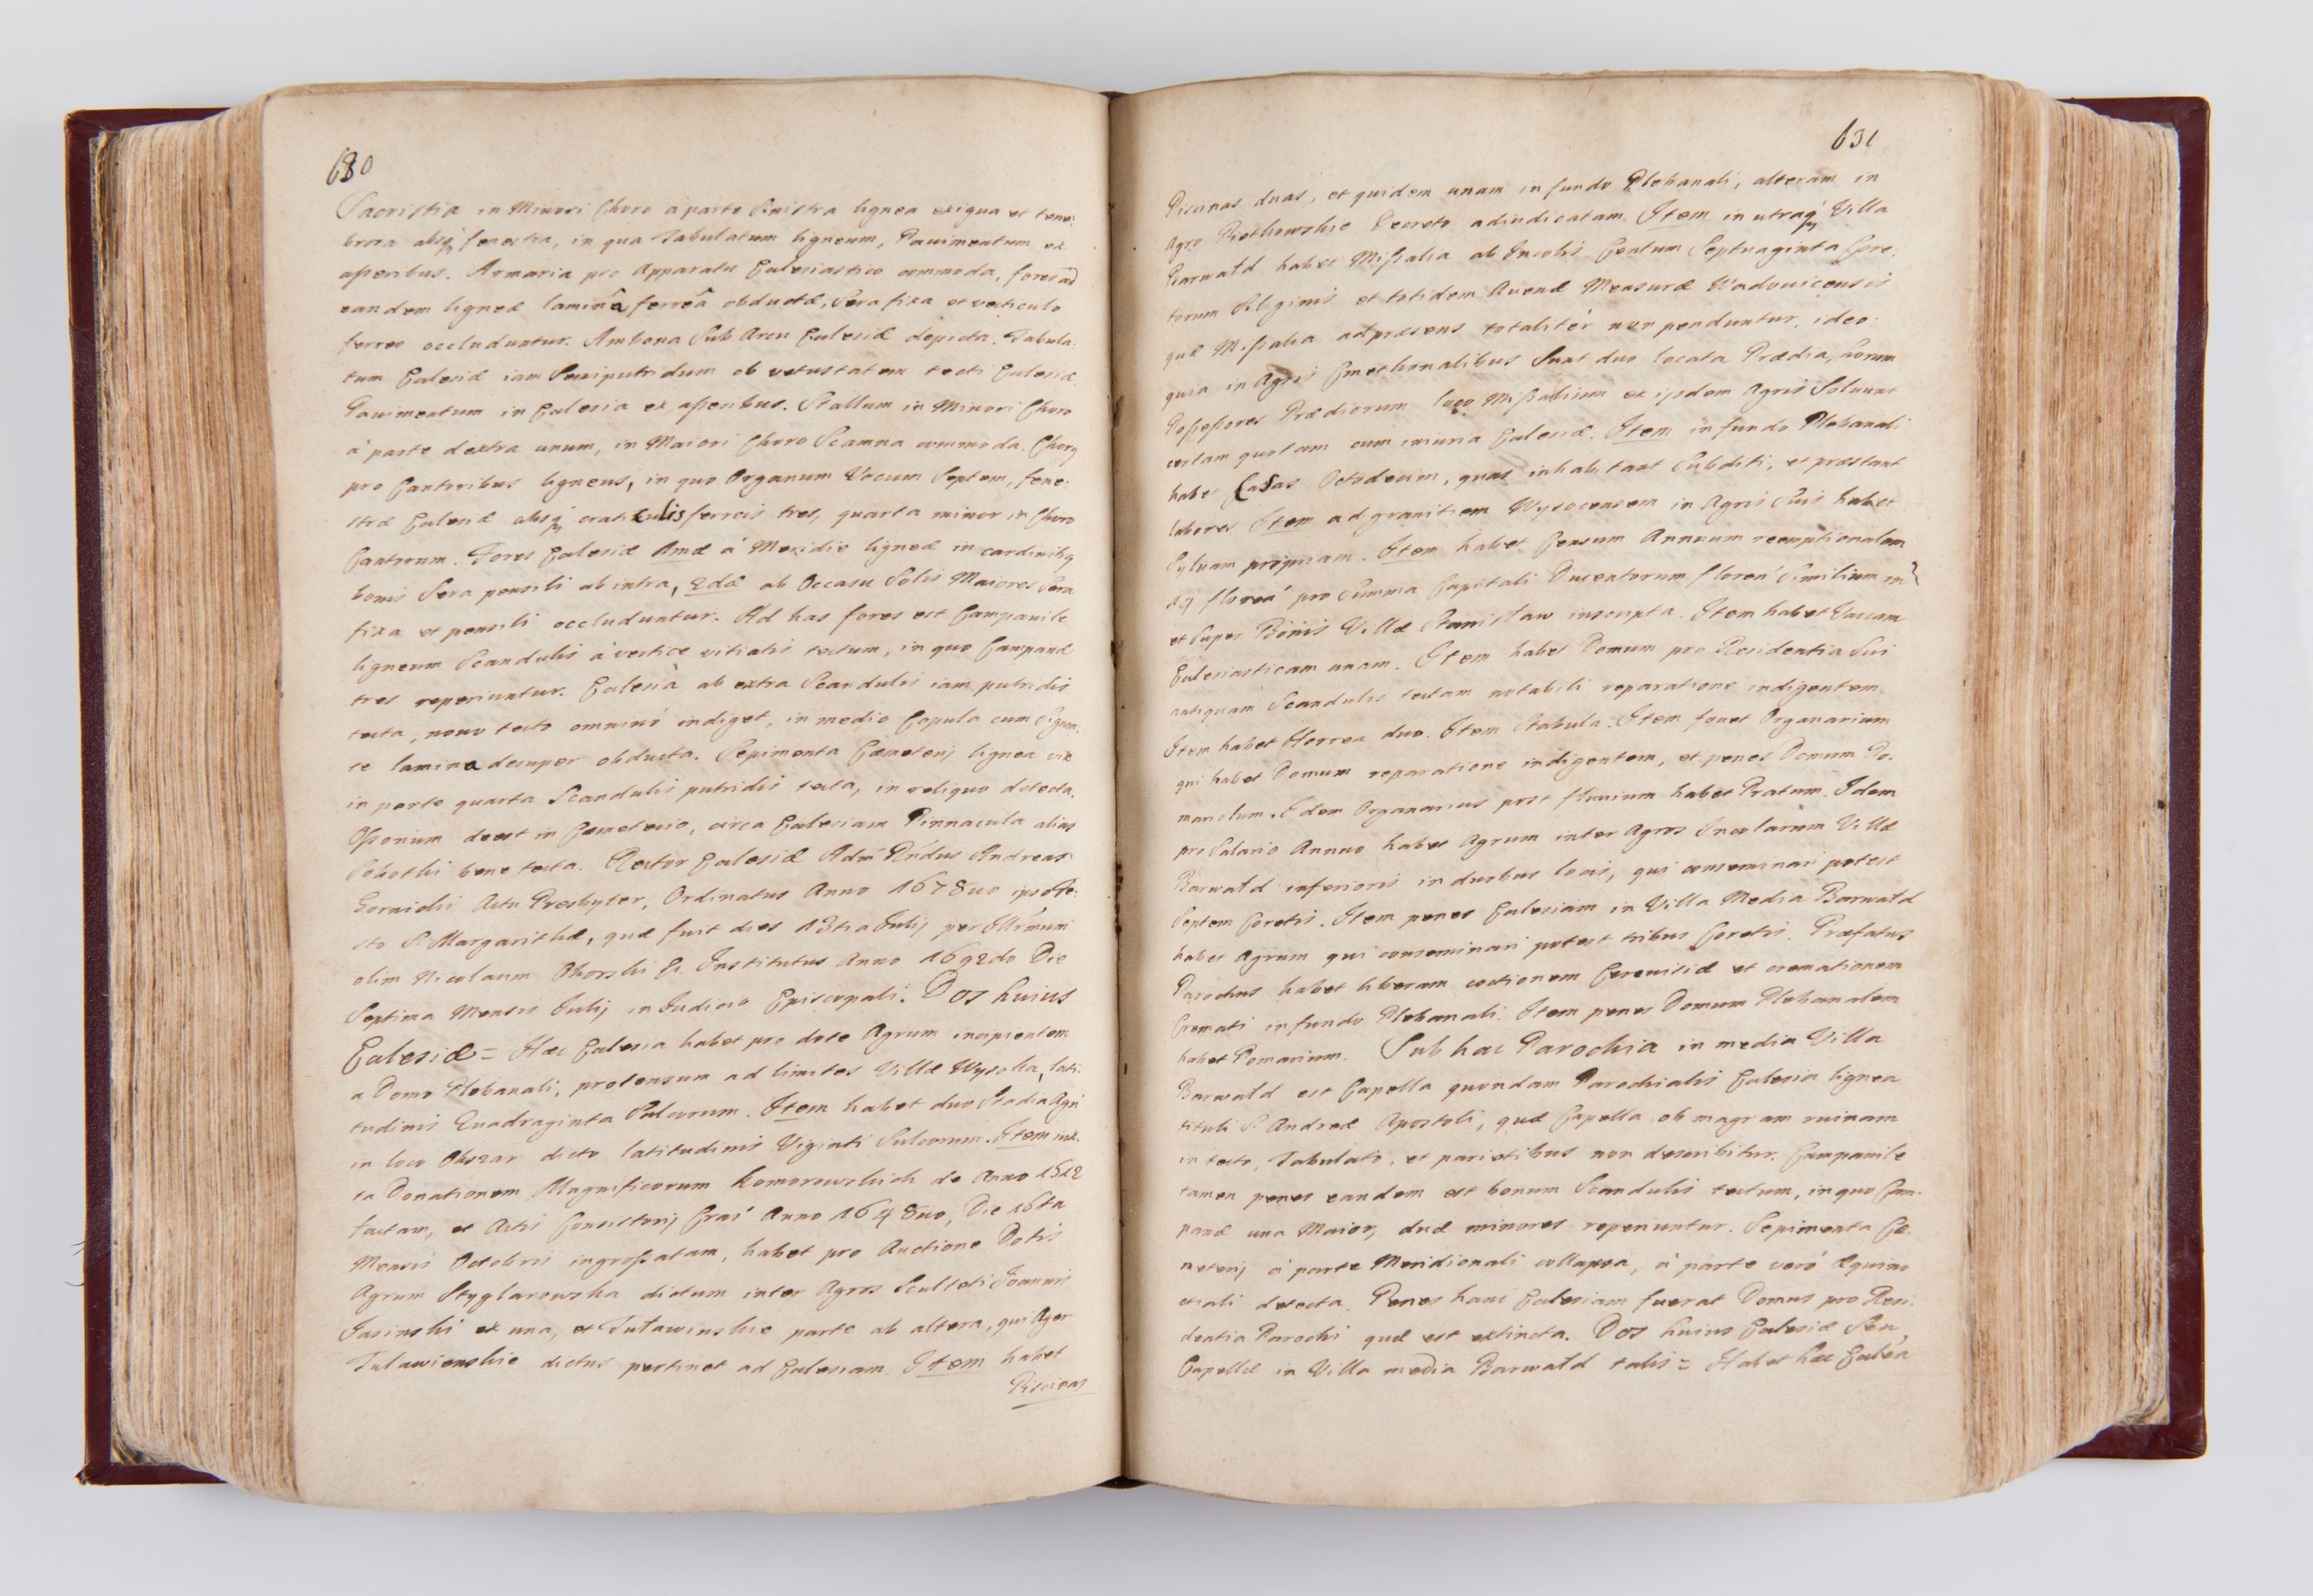 680
Sacristia in Minori Choro à parte Sinistra lignea exigua et tene-
brosa absq fenestra, in qua Tabulatum ligneum, Pauimentum ex
asseribus. Armaria pro Apparatu Ecclesiastico commoda, fores ad
eandem ligneæ laminâ ferreâ obductæ, Sera fixa et vecticulo
ferreo occluduntur. Ambona Sub Arcu Ecclesiæ depicta. Tabula-
tum Ecclesiæ iam Semiputridum ob vetustatem tecti Ecclesiæ,
Pauimentum in Ecclesia ex asseribus. Stallum in Minori Choro
à parte dextra unum, in Maiori Choro Scamna commoda. Chorq
pro Cantoribus ligneus, in quo Organum Vocum Septem, fene-
stræ Ecclesiæ absq craticulis ferreis tres, quarta minor in Choro
Cantorum. Fores Ecclesiæ Amæ à Meridie ligneæ in cardinibq
bonis Sera pensili ab intra, 2dæ ab Occasu Solis Maiores Sera
fixa et pensili occluduntur. Ad has fores est Campanile
ligneum Scandulis à vertice vitiatis tectum, in quo Campanæ
tres reperiuntur. Ecclesia ab extra Scandulis iam putridis
tecta, nouo tecto omninò indiget, in medio Copula cum Signan-
te lamina desuper obducta. Sepimenta Cæmeterij lignea vix
in parte quarta Scandulis putridis tecta, in reliquo detecta.
Ossorium deest in Cæmeterio, circa Ecclesiam Pinnacula alias
Sobothi bene tecta. Rector Ecclesiæ Adm Rndus Andreas
Gornichi Actu Presbyter, Ordinatus Anno 1678uo ipso Fe-
sto S Margarithæ, quæ fuit dies 13tia Julij per Illrmum
olim Nicolaum Oborski Ep. Institutus Anno 1692do Die
Septima Mensis Julij in Iudicio Episcopali. Dos huius
Ecclesiæ = Hæc Ecclesia habet pro dote Agrum incipientem
a Domo Plebanali, protensum ad limites Villæ Wysoka, lati-
tudinis Quadraginta Sulcorum. Item habet duo Stadia Agri
in loco Obszar dicto latitudinis Viginti Sulcorum. Item iux-
ta Donationem Magnificorum Komorowskich de Anno 1512
factam, et Actis Consistorij Crac Anno 1648uo, Die 16ta
Mensis Octobris ingrossatam, habet pro Auctione Dotis
Agrum Styglarowska dictum inter Agros Sculteti Joannis
Jasinski ex una, et Tutawinskie parte ab altera, qui Ager
Tulawienskie dictus pertinet ad Ecclesiam. Item habet
Piscinas
631
Piscinas duas, et quidem unam in fundo Plebanali, alteram in
Agro Piethowskie Decreto adiudicatam. Item in utraq Villa
Barwald habet Missalia ab Incolis Centum Septuaginta Core-
torum Siliginis et totidem Auenæ Mensuræ Wadouicensis
quæ Missalia ad præsens totalitèr non penduntur, ideo
quia in Agris Cmethonalibus Sunt duo locata Prædia, horum
Possessores Prædiorum loco Missalium ex ijsdem Agris Soluunt
certam quotam cum iniuria Ecclesiæ. Item in fundo Plebanali
habet Casas Octodecim, quas inhabitant Subditi, et præstant
labores. Item ad granitiem Wysocensem in Agris Suis habet
Syluam propriam. Item habet Censum Annuum reemptionalem
19 floren pro Summa Capitali Ducentorum floren Similium in
et Super Bonis Villæ Stanisław inscripta. Item habet Vaccam
Ecclesiasticam unam. Item habet Domum pro Residentia Sui
antiquam Scandulis tectam notabili reparatione indigentem.
Item habet Horrea duo. Item Stabula. Item fouet Organarium
qui habet Domum reparatione indigentem, et penes Domum Po-
mariolum. Idem Organarius post fluuium habet Pratum. Idem
pro Salario Annuo habet Agrum inter Agros Incolarum Villæ
Barwald inferioris in duobus locis, qui conseminari potest
Septem Coretis. Item penes Ecclesiam in Villa Media Barwald
habet Agrum qui conseminari potest tribus Coretis. Præfatus
Parochus habet liberam coctionem Cereuisiæ et cremationem
Cremati in fundo Plebanali. Item penes Domum Plebanalem
habet Pomarium. Sub hac Parochia in media Villa
Barwald est Capella quondam Parochialis Ecclesia lignea
tituli S Andreæ Apostoli, quæ Capella ob magnam ruinam
in tecto, Tabulato, et parietibus non describitur. Campanile
tamen penes eandem est bonum Scandulis tectum, in quo Cam-
panæ una Maior, duæ minores reperiuntur. Sepimenta Cæ-
meterij à parte Meridionali collapsa, à parte verò Æquino
ctiali detecta. Penes hanc Ecclesiam fuerat Domus pro Resi-
dentia Parochi quæ est extincta. Dos huius Ecclesiæ Seu
Capellæ in Villa media Barwald talis = Habet hæc Eccl͠ia